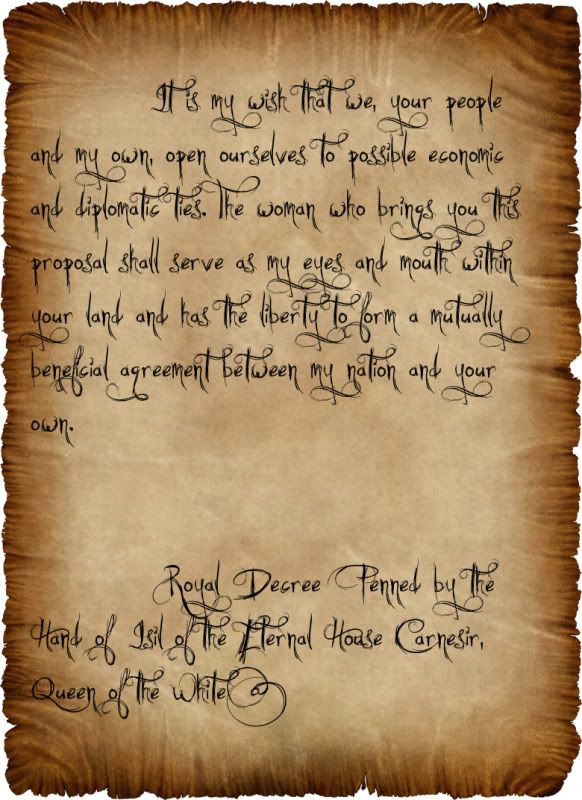 It is my wish that we, your people
and my own, open ourselves to possible economic
and diplomatic ties. The woman who brings you this
proposal shall serve as my eyes and mouth within
your land and has the liberty to form a mutually
beneficial agreement between my nation and your
own.
Royal Decree Penned by the
Hand of Isil of the Eternal House Carnesir,
Queen of the White